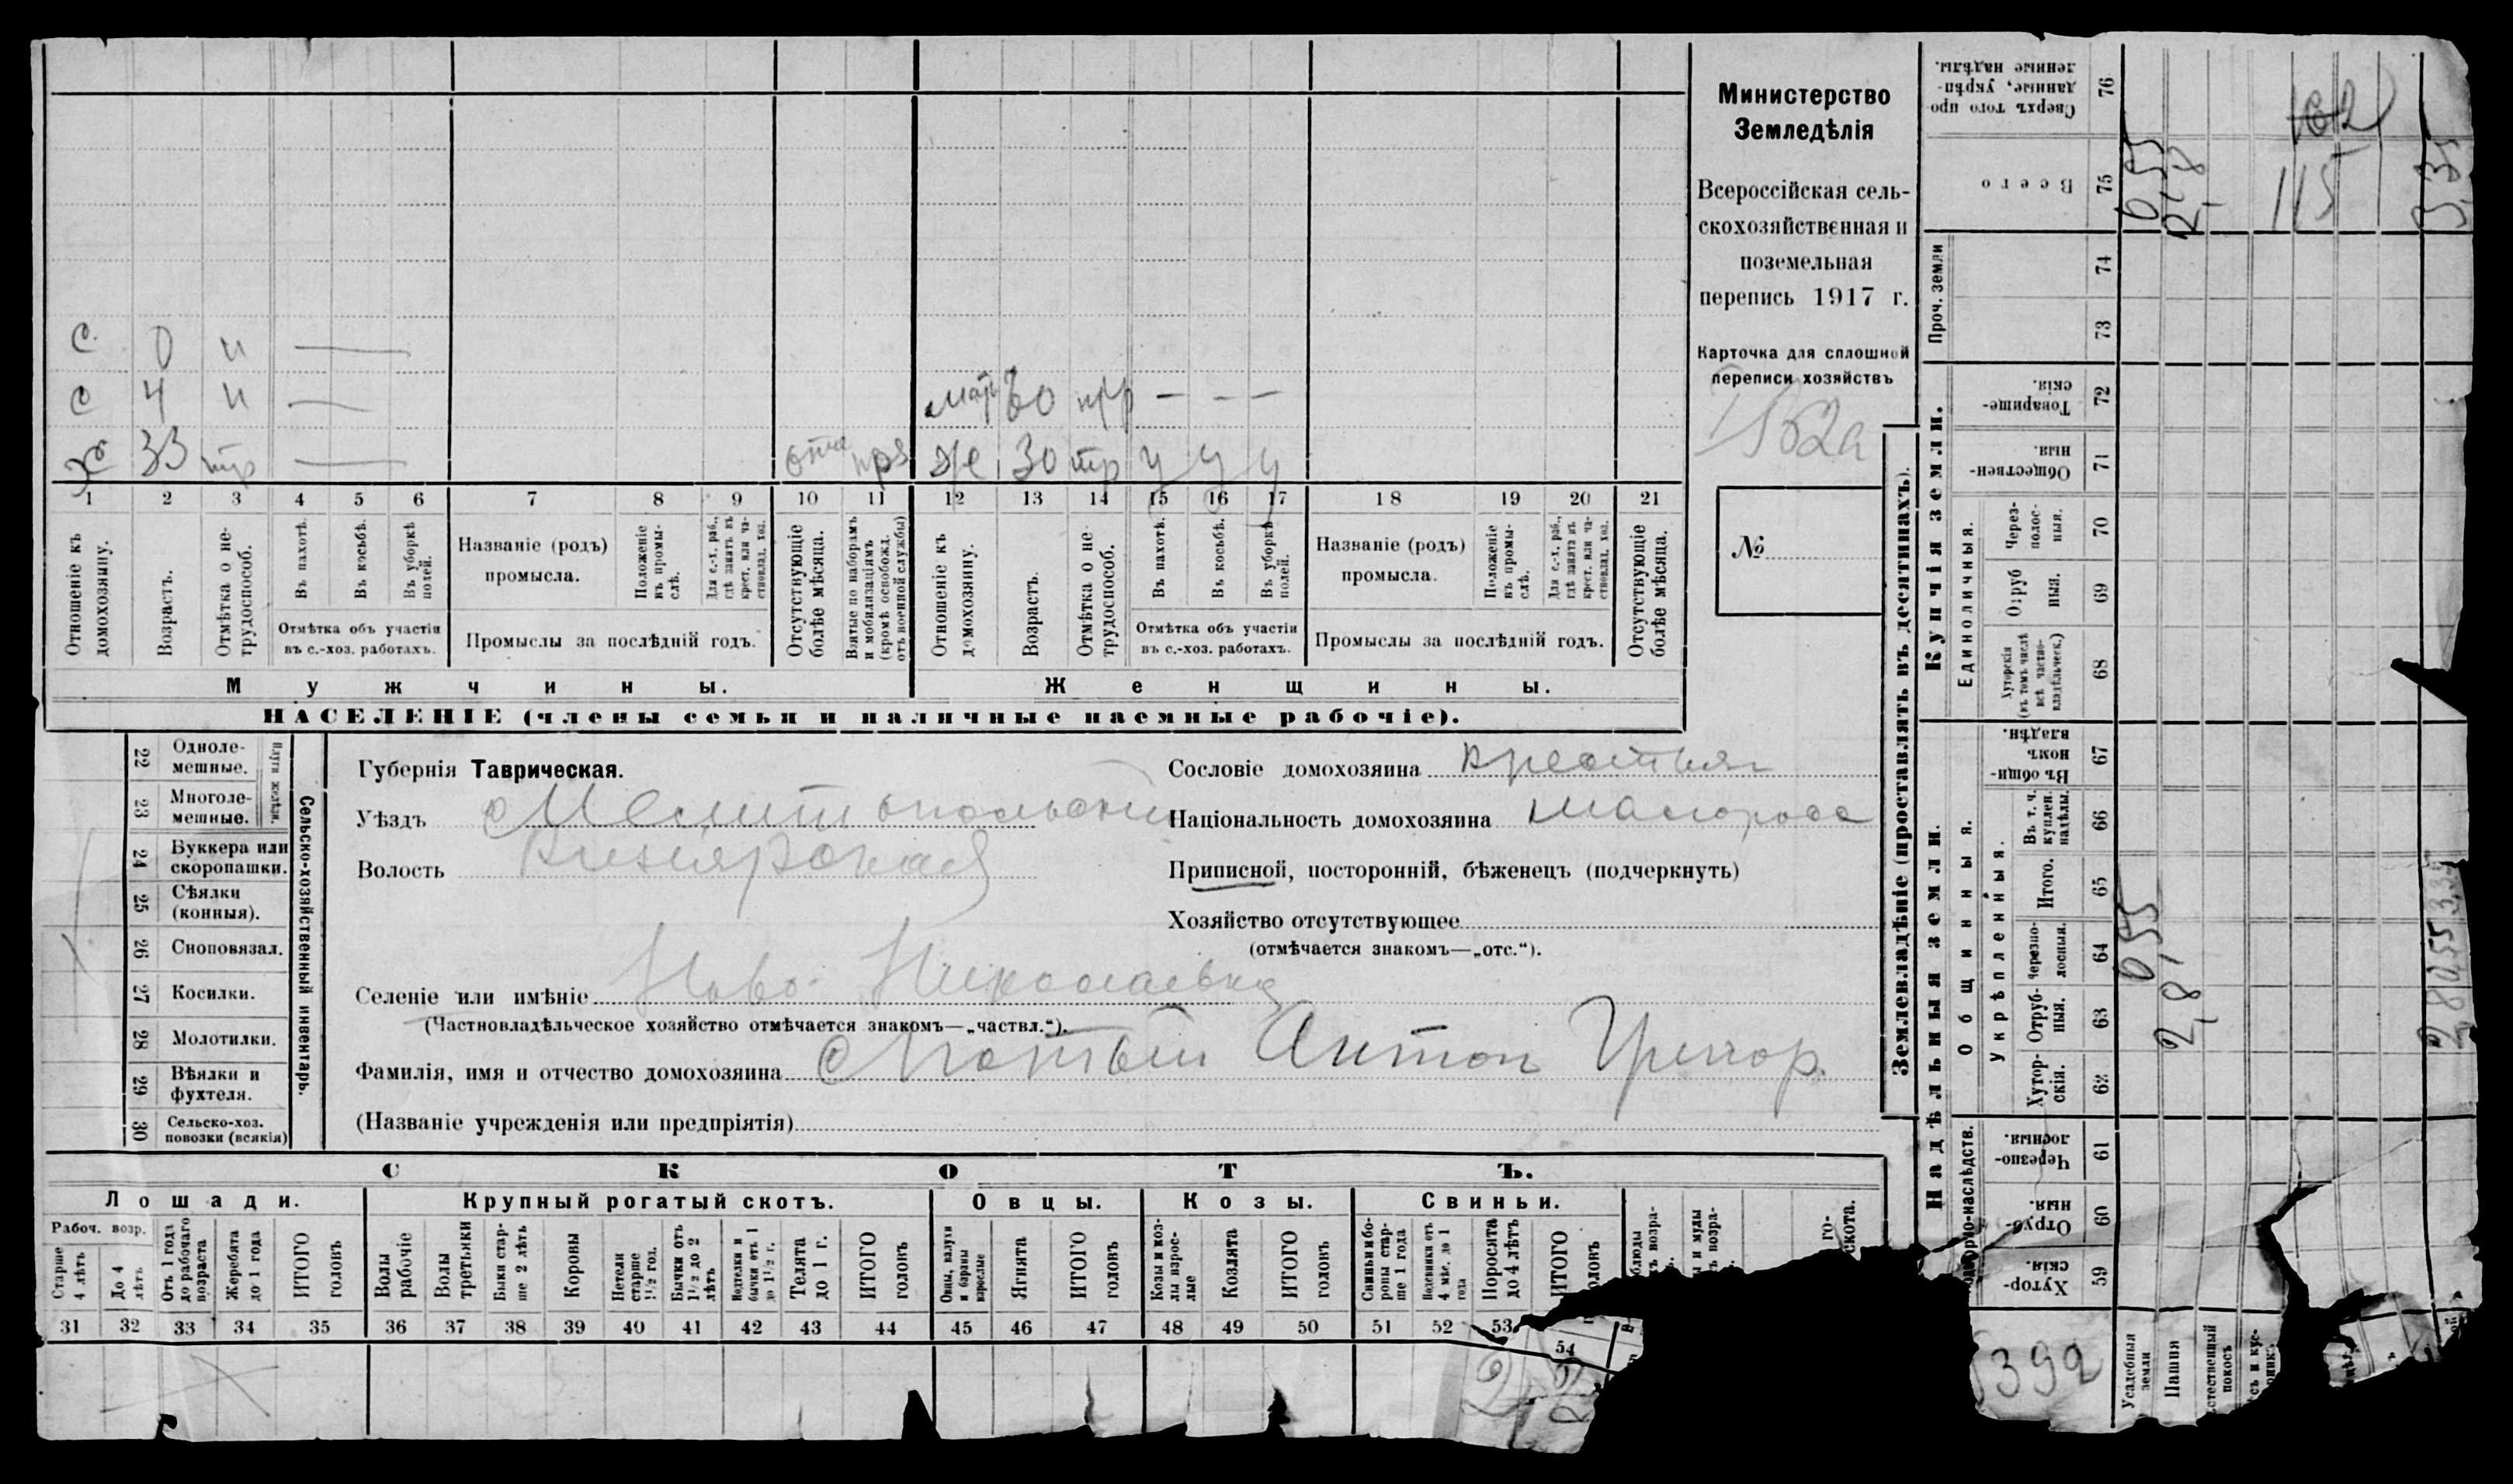 Министерство
Земледѣлія
Всероссійская сель-
скохозяйственная и
поземельная
перепись 1917 г.
Карточка для сплошной
переписи хозяйствъ
1562а
№
с 0 н —
с 4 н —
мат 60 нтр — — —
хо 33 тр —
же 30 тр у у у
1 2 3 4 5 6 7 8 9 10 11 12 13 14 15 16 17 18 19 20 21
Отношеніе къ домохозяину.
Возрастъ.
Отмѣтка о не-трудоспособ.
Въ пахотѣ.
Въ косьбѣ.
Въ уборкѣ полей.
Отмѣтка объ участіи
въ с.-хоз. работахъ.
Названіе (родъ)
промысла.
Положеніе въ промы-слѣ.
Для с.-х. раб., гдѣ занятъ въ крест. или ча-стновлад. хоз.
Промыслы за послѣдній годъ.
Отсутствующіе болѣе мѣсяца.
Взятые по наборамъ и мобилизаціямъ (кромѣ освобожд. отъ военной службы)
Отношеніе къ домохозяину.
Возрастъ.
Отмѣтка о не-трудоспособ.
Въ пахотѣ.
Въ косьбѣ.
Въ уборкѣ полей.
Отмѣтка объ участіи
въ с.-хоз. работахъ.
Названіе (родъ)
промысла.
Положеніе въ промы-слѣ.
Для с.-х. раб., гдѣ занята въ крест. или ча-стновлад. хоз.
Промыслы за послѣдній годъ.
Отсутствующіе болѣе мѣсяца.
Мужчины.
Женщины.
НАСЕЛЕНІЕ (члены семьи и наличные наемные рабочіе).
22 Одноле-мешные.
23 Многоле-мешные.
Плуги желѣзн.
24 Буккера или скоропашки.
25 Сѣялки (конныя).
26 Сноповязал.
27 Косилки.
28 Молотилки.
29 Вѣялки и фухтеля.
30 Сельско-хоз. повозки (всякія)
Сельско-хозяйственный инвентарь.
Губернія Таврическая.
Уѣздъ Мелитопольскій
Волость
Селеніе или имѣніе Ново-Николаевка
(Частновладѣльческое хозяйство отмѣчается знакомъ—„частвл.“).
Фамилія, имя и отчество домохозяина Антон Григор.
(Названіе учрежденія или предпріятія)
Сословіе домохозяина крестьян
Національность домохозяина малоросс
Приписной, посторонній, бѣженецъ (подчеркнуть)
Хозяйство отсутствующее
(отмѣчается знакомъ—„отс.“).
СКОТЪ.
Лошади.
Крупный рогатый скотъ.
Овцы.
Козы.
Свиньи.
Рабоч. возр.
Старше 4 лѣтъ
До 4 лѣтъ
Отъ 1 года до рабочаго возраста
Жеребята до 1 года
ИТОГО головъ
Волы рабочіе
Волы третьяки
Быки стар-ше 2 лѣтъ
Коровы
Нетели старше 1½ год.
Бычки отъ 1½ до 2 лѣтъ
Подтелки и бычки отъ 1 до 1½ г.
Телята до 1 г.
ИТОГО головъ
Овцы, валухи и бараны взрослые
Ягнята
ИТОГО головъ
Козы и коз-лы взрос-лые
Козлята
ИТОГО головъ
Свиньи и бо-ровы стар-ше 1 года
Подсвинки отъ 4 мѣс. до 1 года
Поросята до 4 лѣтъ
ИТОГО
31 32 33 34 35 36 37 38 39 40 41 42 43 44 45 46 47 48 49 50 51 52 53 54
2
Землевладѣніе (проставлять въ десятинахъ).
Надѣльныя земли.
Купчія земли.
Проч. земли
Общинныя.
Укрѣпленныя.
Единоличныя.
Сверхъ того про-данные, укрѣп-ленные надѣлы. 76
Всего 75
74
73
Товарище-скія. 72
Обществен-ныя. 71
Через-полос-ныя. 70
Отруб-ныя. 69
Хуторскія (въ томъ числѣ всѣ частно-владѣльческ.) 68
Въ общин-номъ владѣн. 67
Въ т. ч. куплен. надѣлы. 66
Итого. 65
Черезпо-лосныя. 64
Отруб-ныя. 63
Хутор-скія. 62
Черезпо-лосныя. 61
Отруб-ныя. 60
Хутор-скія. 59
Усадебныя земли
Пашня
0,55
2,8
115
3,35
0,55
2,8
392